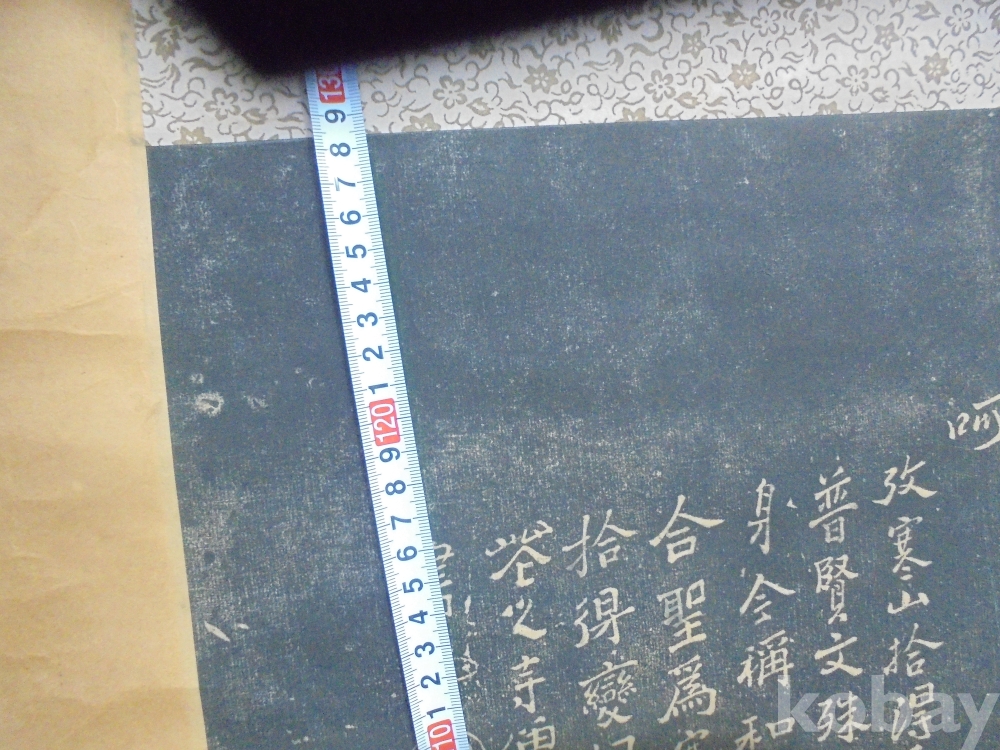 呵
攷寒山拾得
普賢文殊
身今稱和
合聖為寒
拾得變
此之寺
130
9
8
7
6
5
4
3
2
1
120
9
8
7
6
5
4
3
2
1
110
kobay